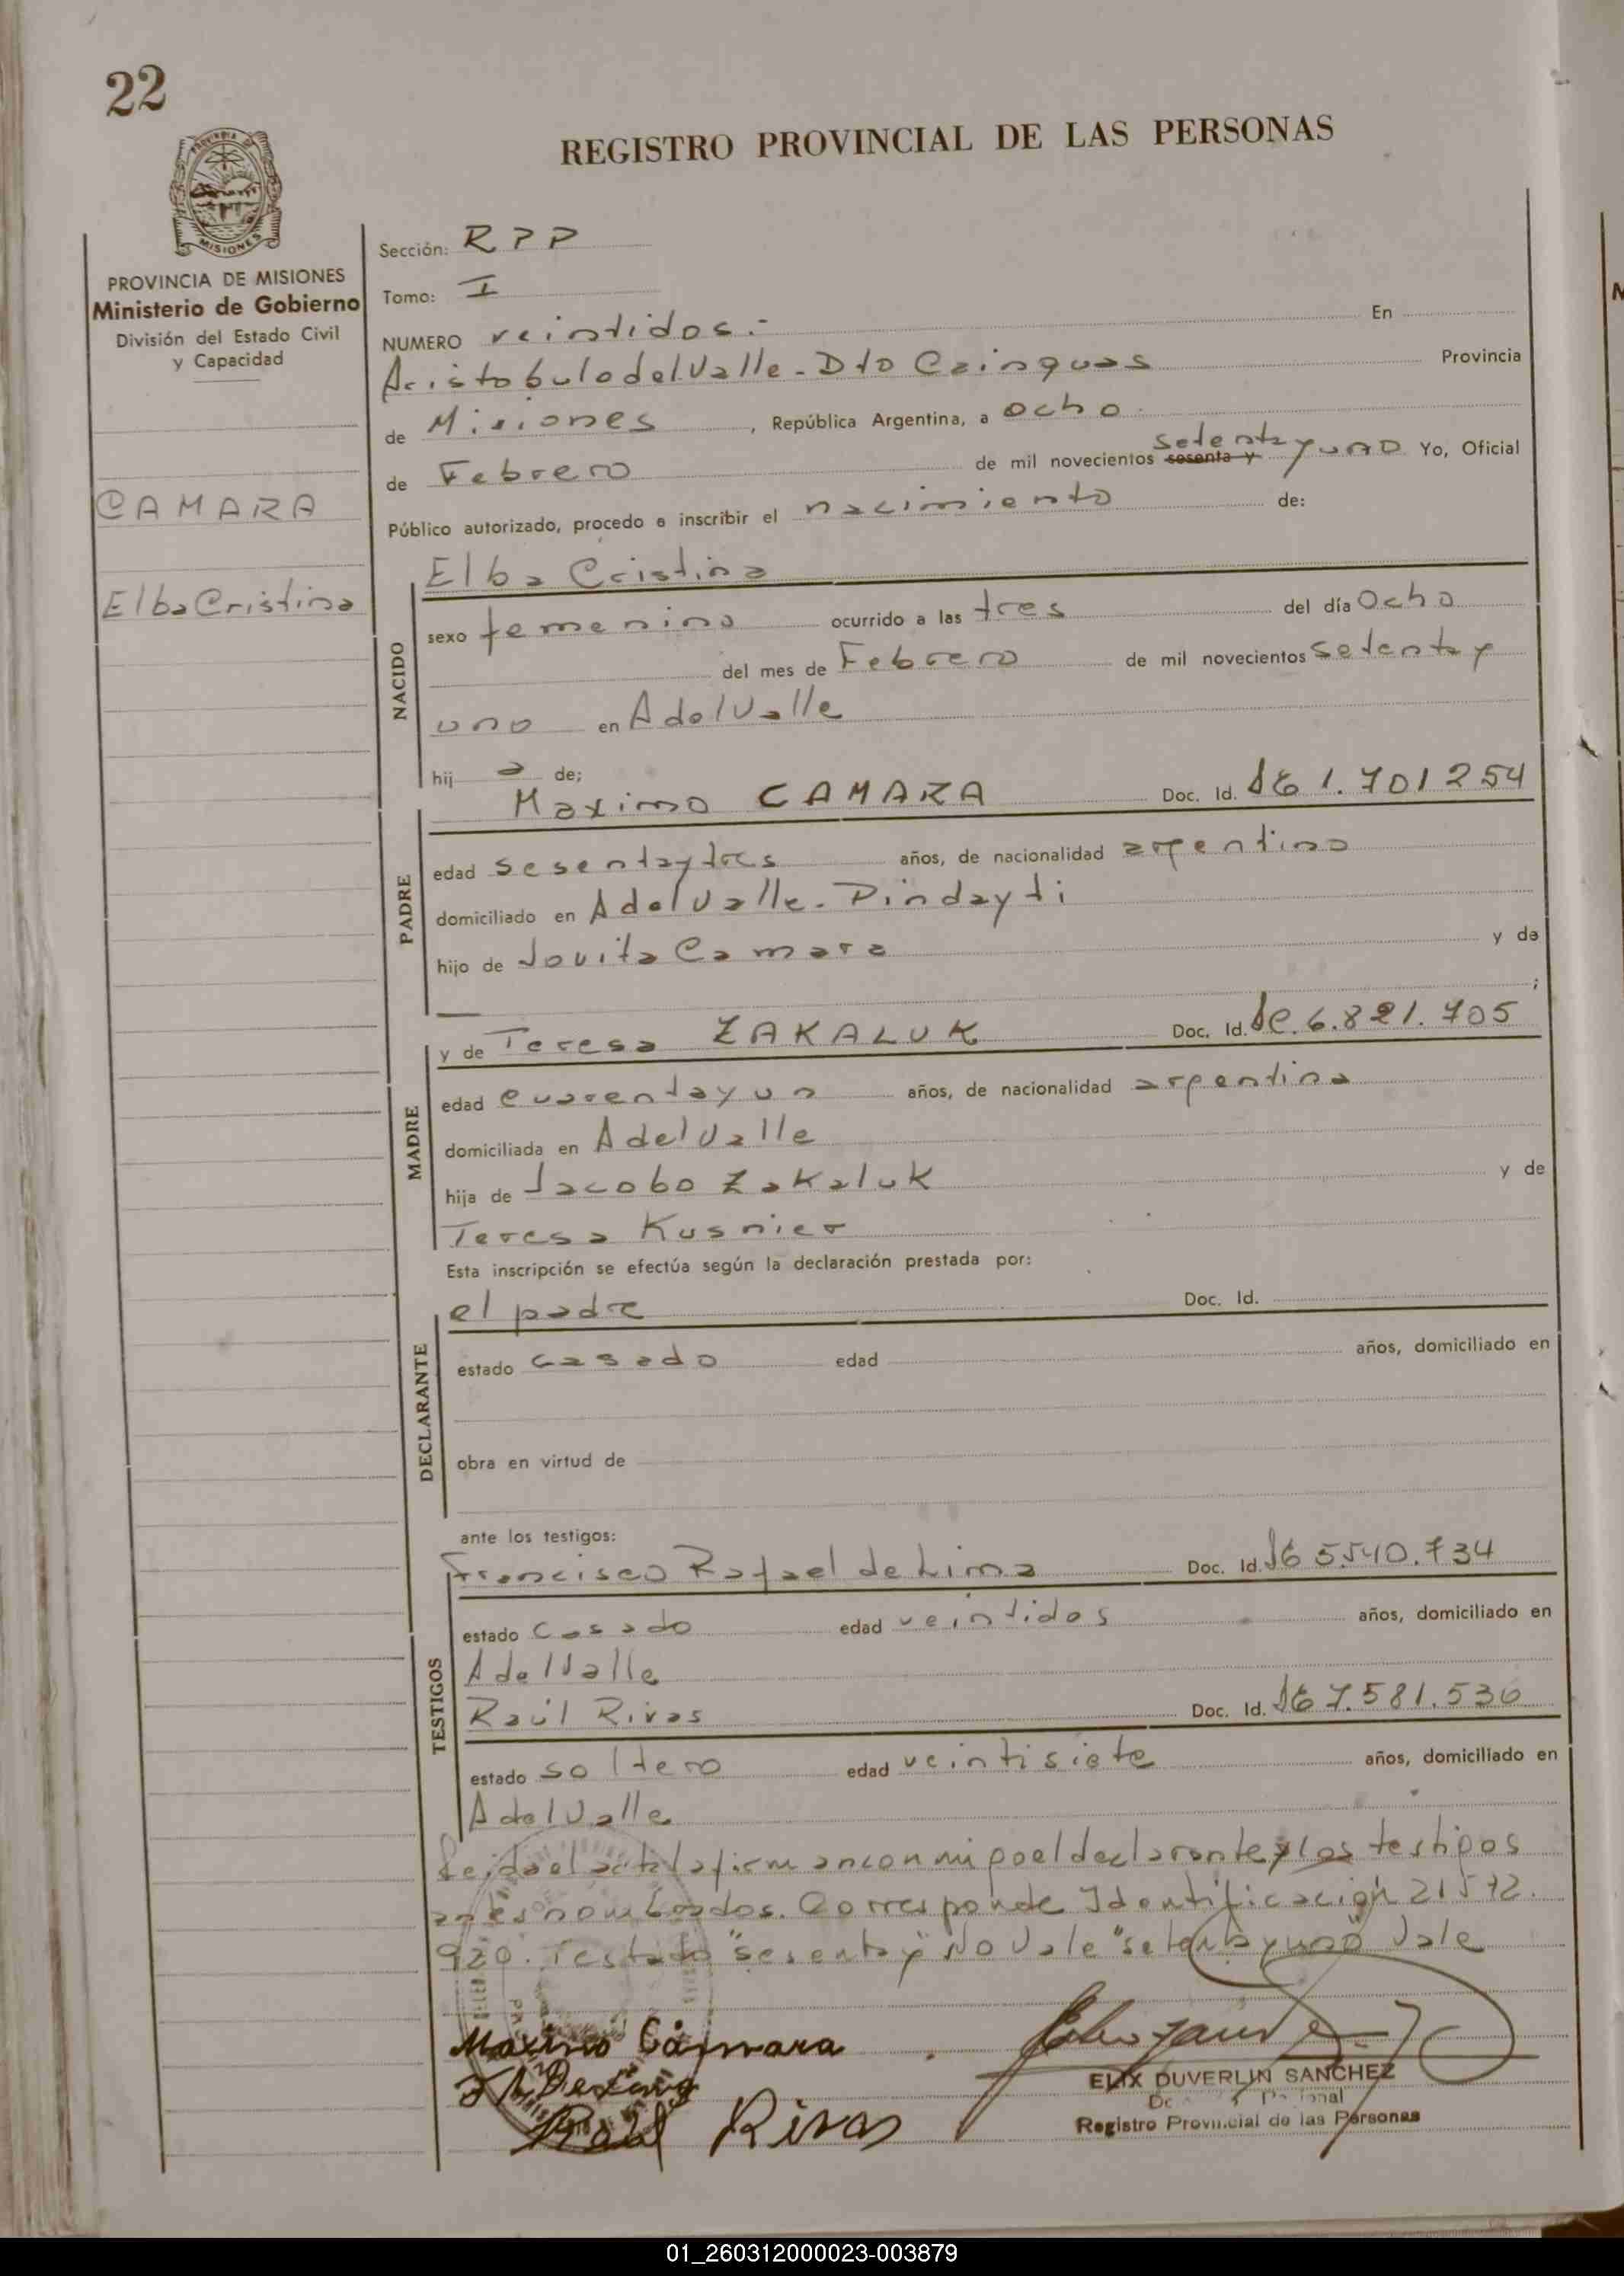 22
REGISTRO PROVINCIAL DE LAS PERSONAS
MISIONES
PROVINCIA DE MISIONES
Ministerio de Gobierno
División del Estado Civil
y Capacidad
CAMARA
Elba Cristina
Sección: RPP
Tomo: I
NUMERO veintidos.- En
Aristobulo del Valle - Dto Cainguas Provincia
de Misiones, República Argentina, a ocho
de Febrero de mil novecientos sesenta y setenta y uno Yo, Oficial
Público autorizado, procedo a inscribir el nacimiento de:
NACIDO
Elba Cristina
sexo femenino ocurrido a las tres del día Ocho
del mes de Febrero de mil novecientos setenta y
uno en A del Valle
hij a de;
PADRE
Maximo CAMARA Doc. Id. 1.701254
edad sesenta y tres años, de nacionalidad argentino
domiciliado en A del Valle - Pindayti
hijo de Jovita Camara y de
;
MADRE
y de Teresa ZAKALUK Doc. Id. 6.821.705
edad cuarenta y un años, de nacionalidad argentina
domiciliada en A del Valle
hija de Jacobo Zakaluk y de
Teresa Kusnier
Esta inscripción se efectúa según la declaración prestada por:
DECLARANTE
el padre Doc. Id.
estado casado edad años, domiciliado en
obra en virtud de
ante los testigos:
TESTIGOS
Francisco Rafael de Lima Doc. Id. 5.540.734
estado casado edad veintidos años, domiciliado en
A del Valle
Raúl Rivas Doc. Id. 7.581.536
estado soltero edad veintisiete años, domiciliado en
A del Valle
Leida el acta la firman conmigo el declarante y los testigos
antes nombrados. Corresponde Identificación 21572.
920. Testado "sesenta y" No Vale "setenta y uno" Vale
Maximo Cámara
Raúl Rivas
ELIX DUVERLIN SANCHEZ
Registro Provincial de las Personas
01_260312000023-003879